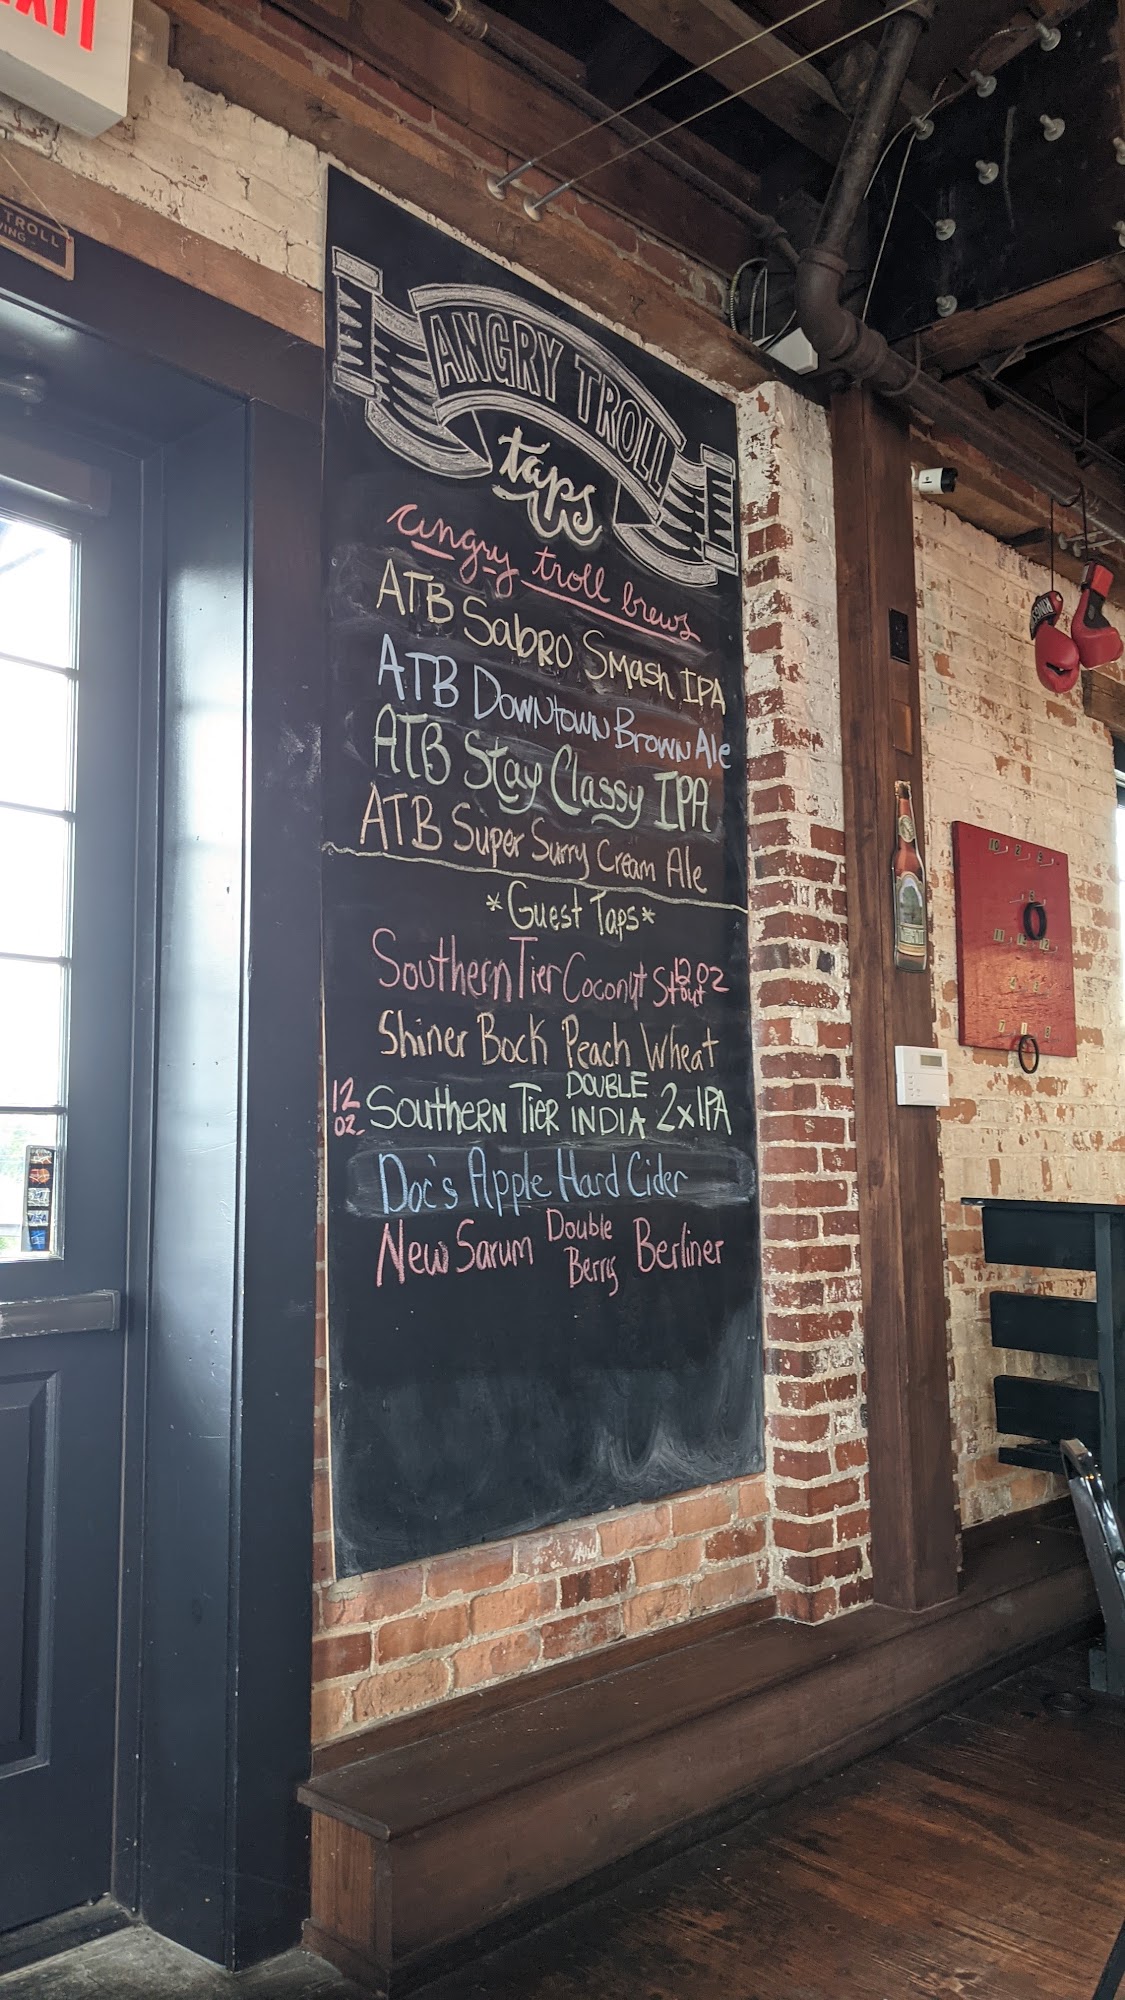 EXIT
TROLL
WING
ANGRY TROLL
taps
angry troll brews
ATB Sabro Smash IPA
ATB Downtown Brown Ale
ATB Stay Classy IPA
ATB Super Surry Cream Ale
*Guest Taps*
Southern Tier Coconut Stout 12 oz
Shiner Bock Peach Wheat
12 oz. Southern Tier DOUBLE INDIA 2xIPA
Doc's Apple Hard Cider
New Sarum Double Berry Berliner